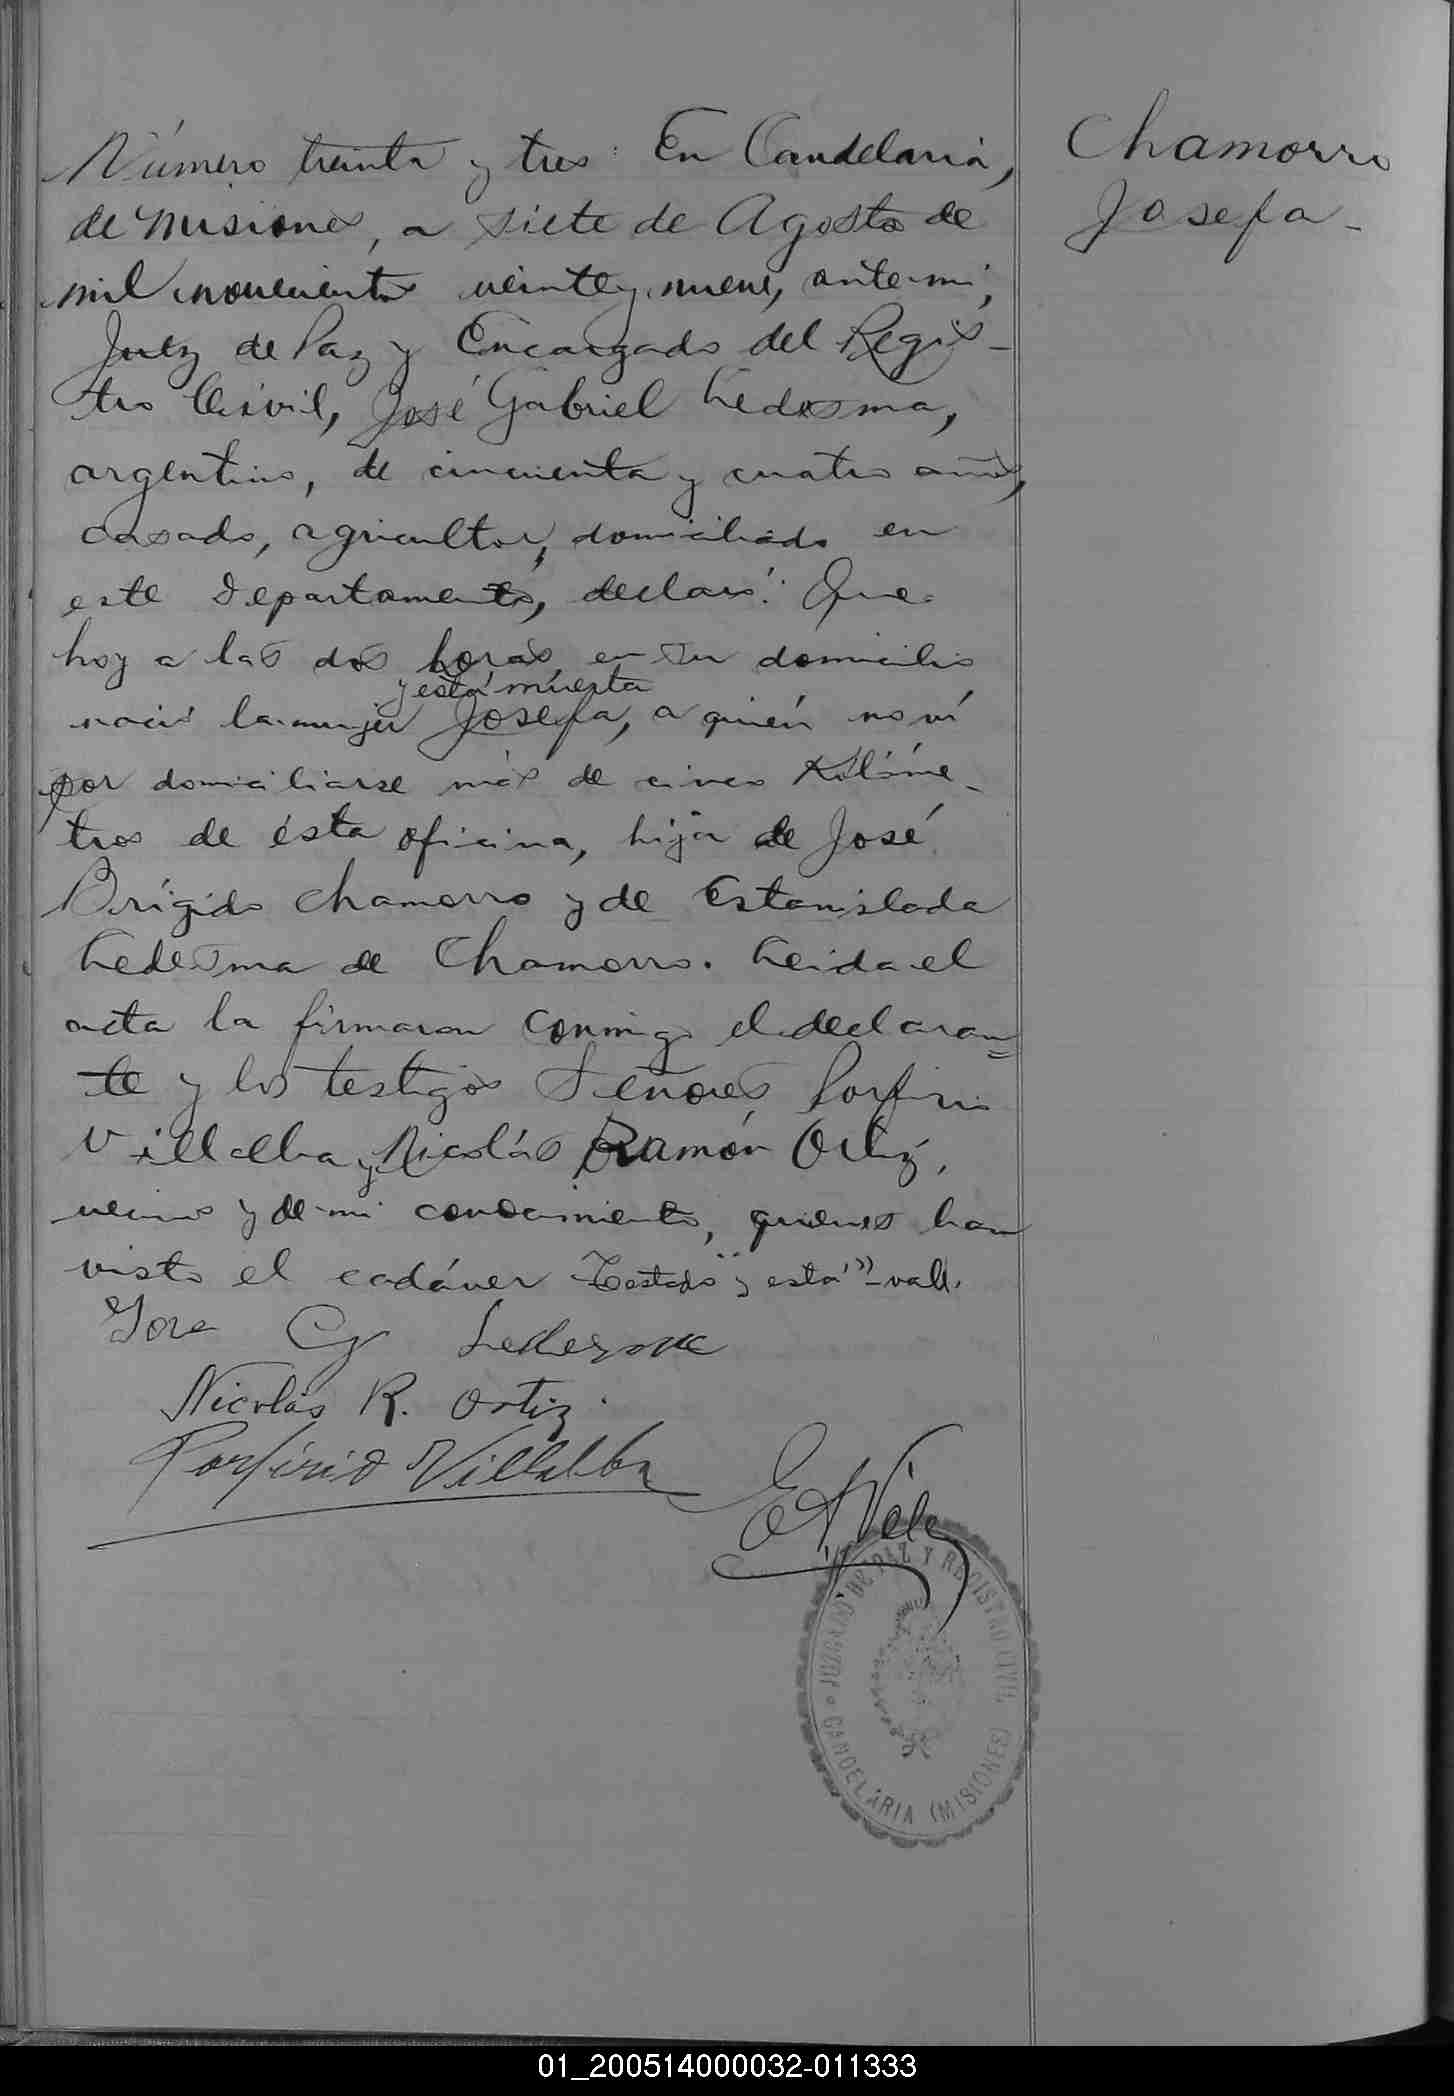 Número treinta y tres: En Candelaria,
de Misiones, a siete de Agosto de
mil novecientos veinte y nueve, ante mi,
Juez de Paz y Encargado del Regis-
tro Civil, José Gabriel Ledesma,
argentino, de cincuenta y cuatro años,
casado, agricultor, domiciliado en
este Departamento, declaró: Que
hoy a las dos horas en su domicilio
y está muerta
nació la mujer Josefa, a quién no ví
por domiciliarse más de cinco Kilóme-
tros de ésta oficina, hija de José
Brígido Chamorro y de Estanislada
Ledesma de Chamorro. Leida el
acta la firmaron conmigo el declaran=
te y los testigos Señores Porfirio
Villalba y Nicolás Ramón Ortiz,
vecinos y de mi conocimiento, quienes han
visto el cadáver Testado "y está"-vale.
Jose G Ledesma
Nicolás R. Ortiz.
Porfirio Villalba
Chamorro
Josefa-
JUZGADO DE PAZ Y REGISTRO CIVIL
CANDELARIA (MISIONES)
01_200514000032-011333